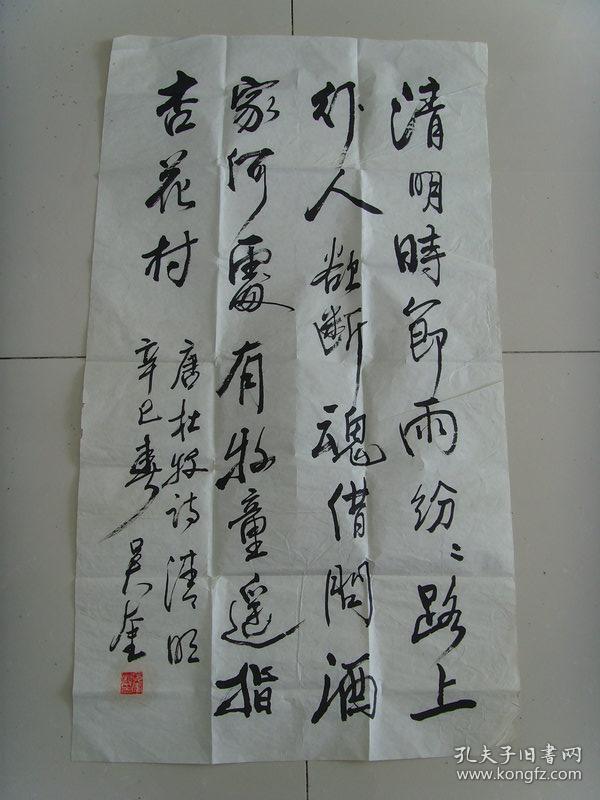 清明時節雨紛〻路上
行人欲斷魂借問酒
家何處有牧童遥指
杏花村
唐杜牧诗清明
辛巳春 吴
孔夫子旧书网
www.kongfz.com